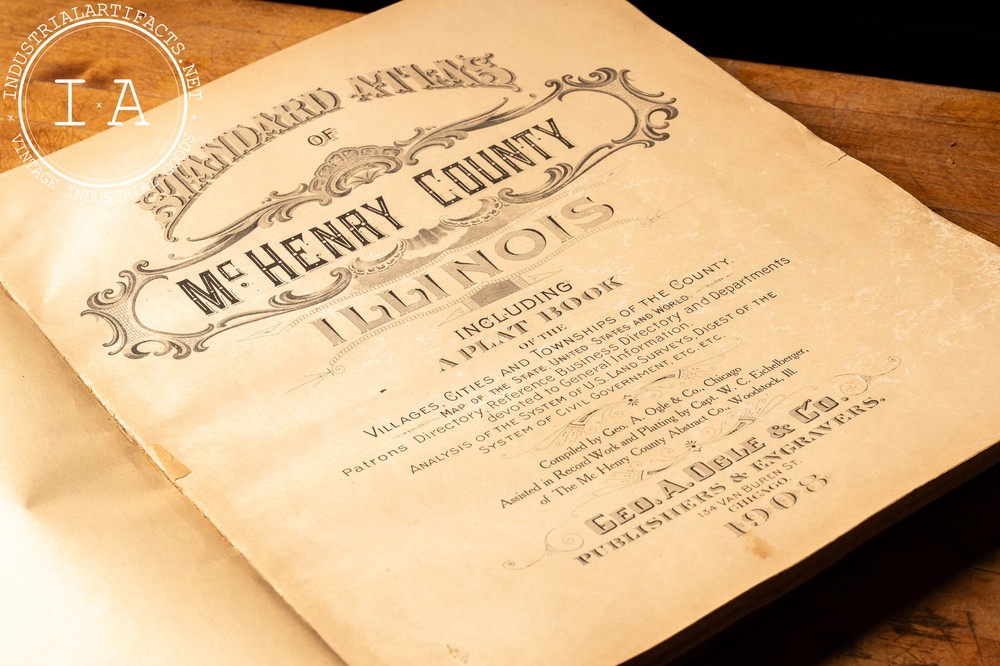 INDUSTRIALARTIFACTS.NET
I x A
VINTAGE INDUSTRIAL GOODS
STANDARD ATLAS
OF
Mc HENRY COUNTY
ILLINOIS
INCLUDING
A PLAT BOOK
OF THE
VILLAGES, CITIES AND TOWNSHIPS OF THE COUNTY.
MAP OF THE STATE, UNITED STATES AND WORLD
Patrons Directory, Reference Business Directory and Departments
devoted to General Information.
ANALYSIS OF THE SYSTEM OF U.S. LAND SURVEYS, DIGEST OF THE
SYSTEM OF CIVIL GOVERNMENT, ETC. ETC.
Compiled by Geo. A. Ogle & Co., Chicago
Assisted in Record Work and Platting by Capt. W. C. Eichelberger,
of The Mc Henry County Abstract Co., Woodstock, Ill.
GEO. A. OGLE & CO.
PUBLISHERS & ENGRAVERS.
134 VAN BUREN ST.
CHICAGO.
1908